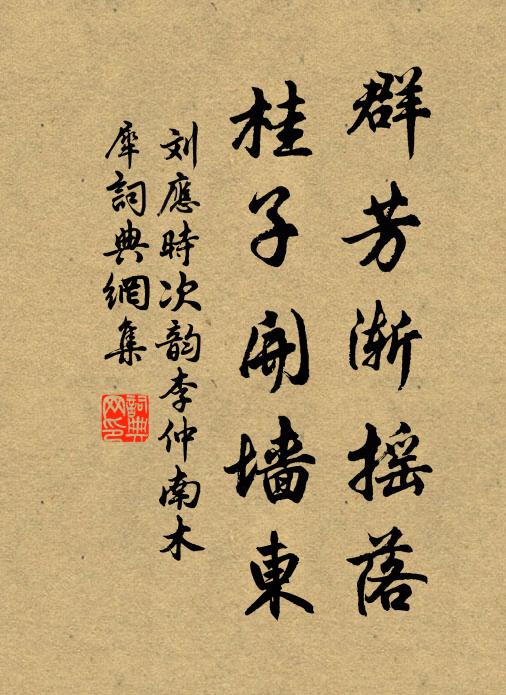 群芳渐摇落
桂子开墙東
刘應時次韵李仲南木
犀詞典網集
詞典
网印